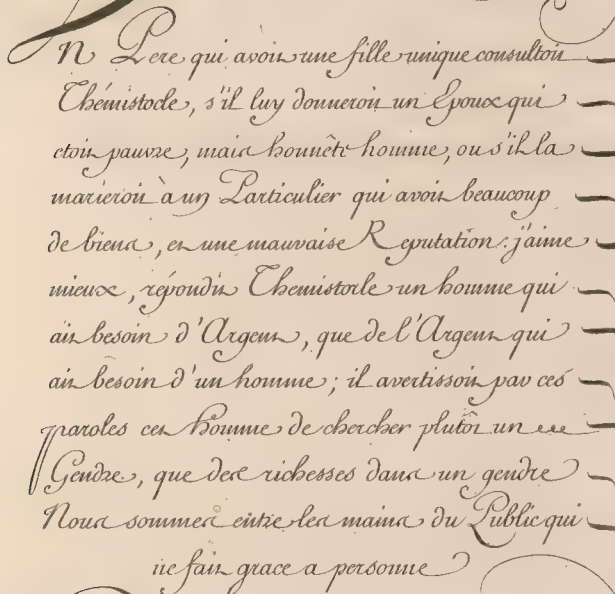 Un Pere qui avoit une fille unique consultoit
Thémistocle, s'il luy donneroit un Epoux qui
etoit pauvre, mais honnête homme, ou s'il la
marieroit à un Particulier qui avoit beaucoup
de biens, et une mauvaise Reputation: j'aime
mieux, répondit Themistocle un homme qui
ait besoin d'Argent, que de l'Argent qui
ait besoin d'un homme; il avertissoit par ces
paroles cet homme de chercher plutôt un
Gendre, que des richesses dans un gendre
Nous sommes entre les mains du Public qui
ne fait grace a personne